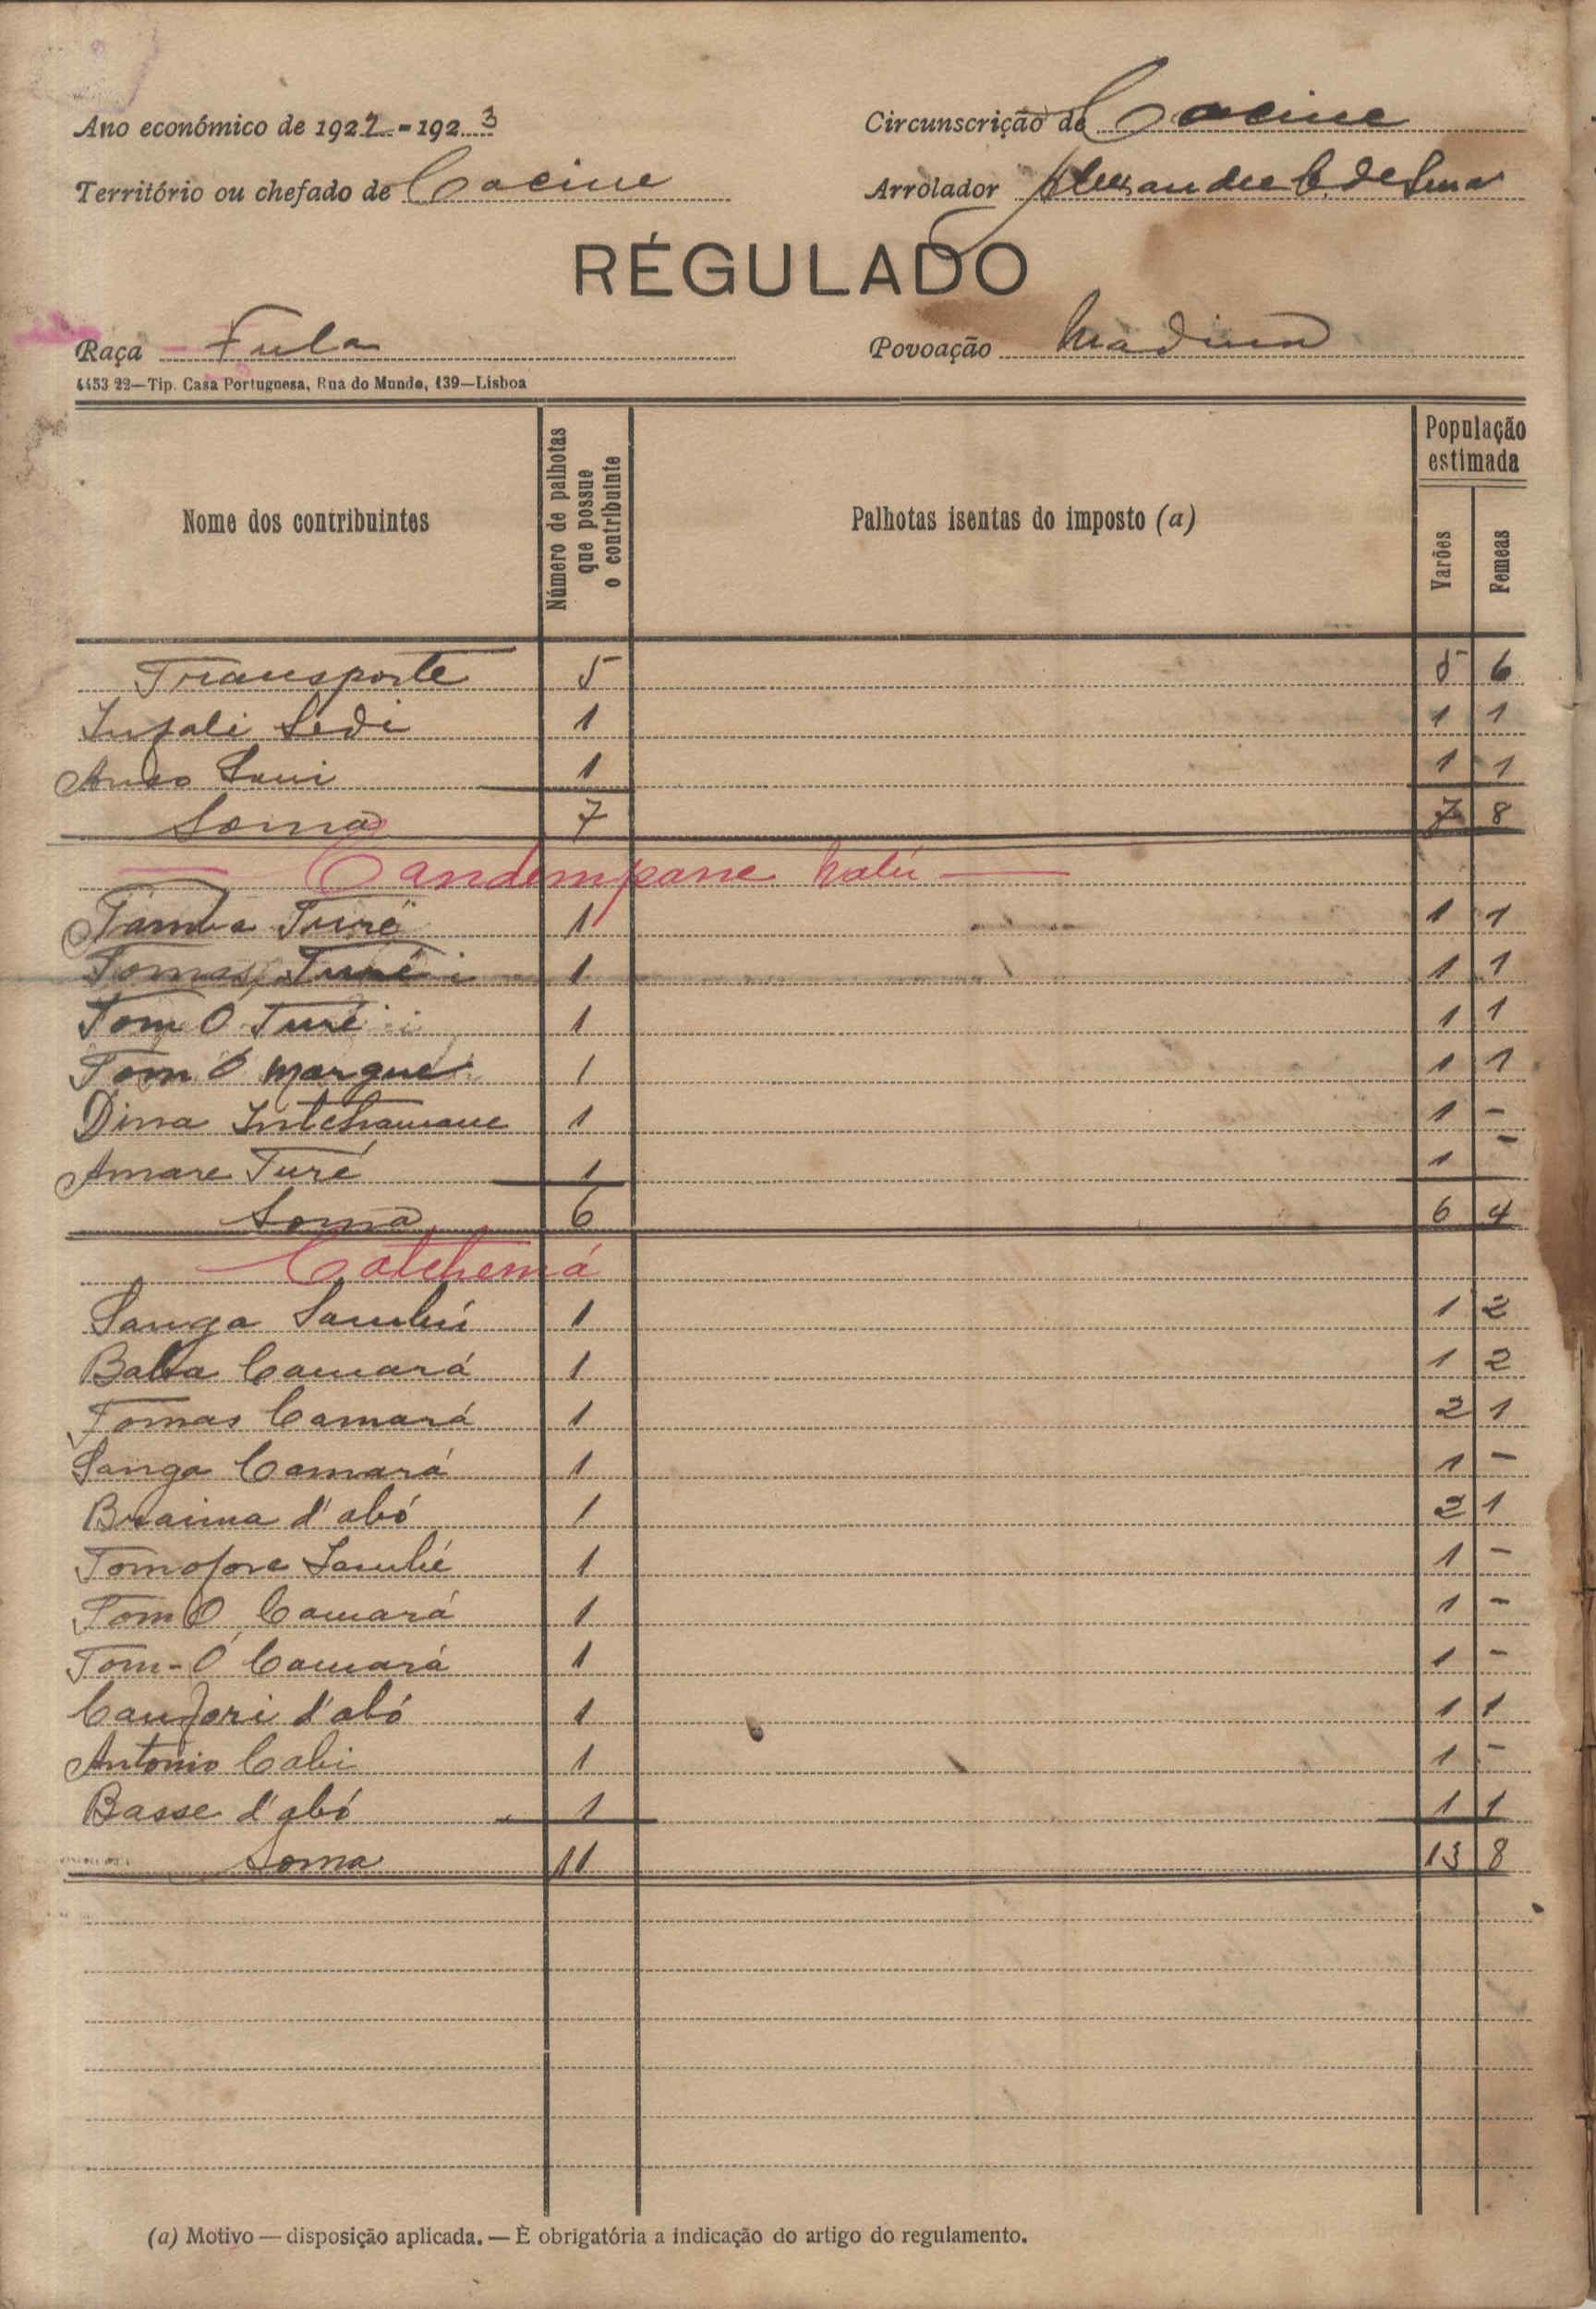 Ano económico de 1922-1923
Circunscrição de Cacine
Território ou chefado de Cacine
Arrolador Alexandre C. de Sena
RÉGULADO
Raça - Fula
Povoação Madina
4453 22—Tip. Casa Portuguesa, Rua do Mundo, 139—Lisboa
Nome dos contribuintes
Número de palhotas que possue o contribuinte
Palhotas isentas do imposto (a)
População estimada
Varões
Femeas
Transporte 5 5 6
Infali Sedi 1 1 1
Sani 1 1 1
Soma 7 7 8
Candempane Nalú
Tamba Turé 1 1 1
Tomas Turé 1 1 1
Tom O Turé 1 1 1
Tom Ó Marque 1 1 1
Dina Intchamane 1 1 -
Amare Turé 1 1 -
Soma 6 6 4
Catchemá
Sanga Sambú 1 1 2
Baba Camará 1 1 2
Tomas Camará 1 2 1
Sanga Camará 1 1 -
Braima d'abó 1 2 1
Tomofore 1 1 -
Tom O Camará 1 1 -
Tom-Ó Camará 1 1 -
Canfori d'abó 1 1 1
Antonio Cabi 1 1 -
Basse d'abó 1 1 1
Soma 11 13 8
(a) Motivo — disposição aplicada. — É obrigatória a indicação do artigo do regulamento.